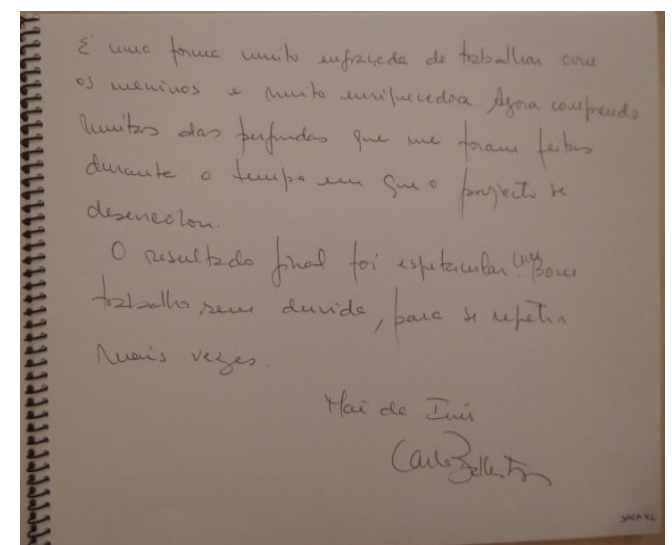 É uma forma muito engraçada de trabalhar com
os meninos e muito enriquecedora. Agora comprendo
muitas das perguntas que me foram feitas
durante o tempo em que o projecto se
desenrolou.
O resultado final foi espetacular! Um Bom
trabalho sem duvida, para se repetir
mais vezes.
Mãe de Inês